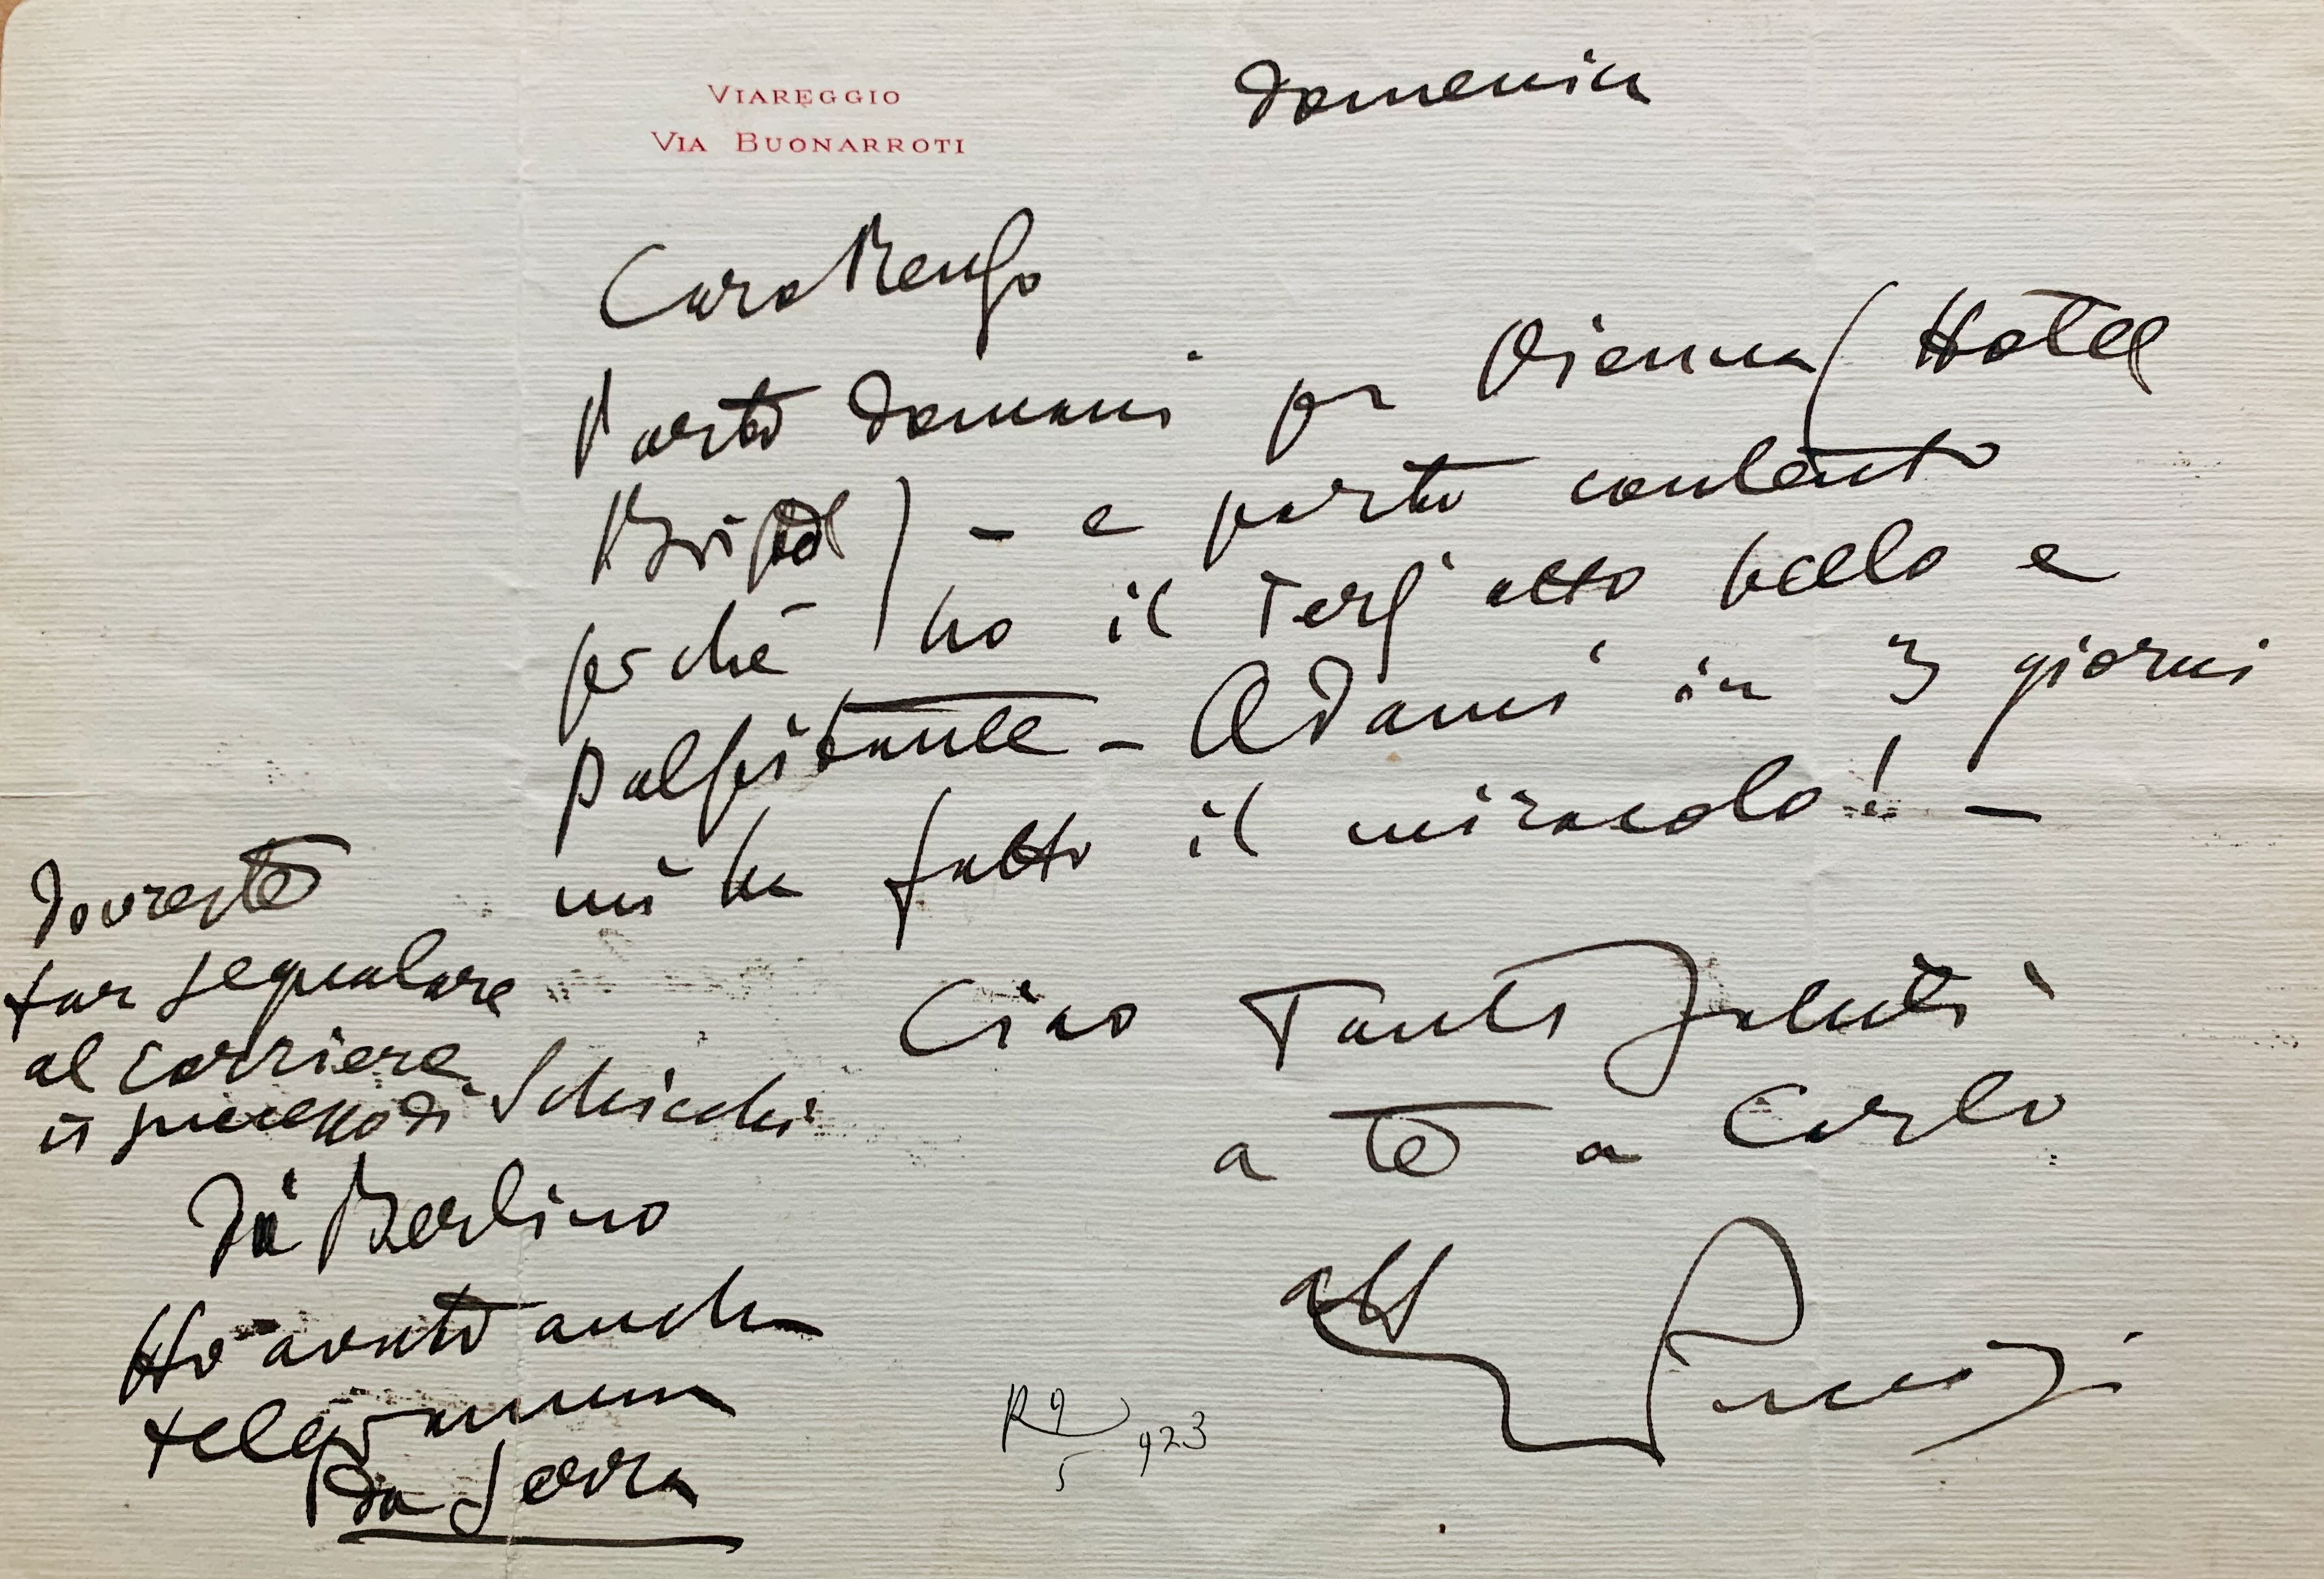 VIAREGGIO
VIA BUONARROTI
domenica
Caro Renzo
Parto domani per Vienna (Hotel
Bristol) – e parto contento
perchè ho il Terz' atto bello e
palpitante – Adami in 3 giorni
mi ha fatto il miracolo! –
Ciao Tanti saluti
a te a Carlo
aff
Puccini
dovreste
far segnalare
al corriere
il successo di Schicchi
di Berlino
Ho avuto anche
telegramma
da Serra
R 9/5 923